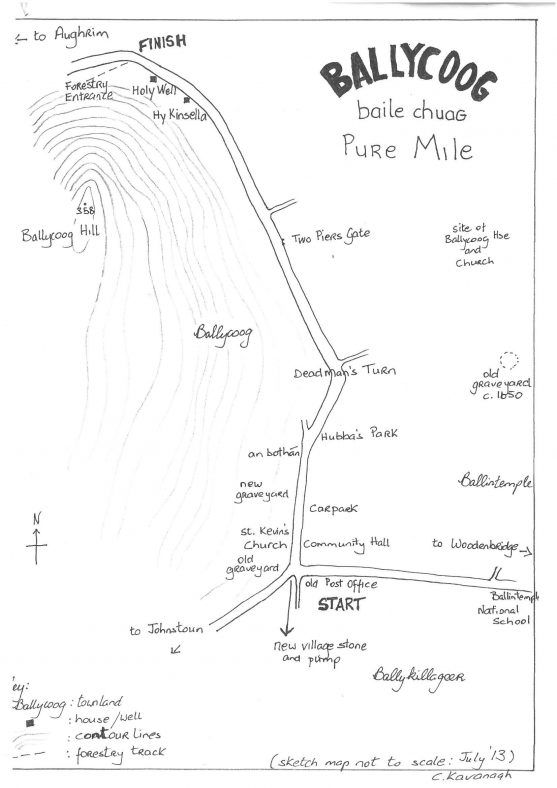 to Aughrim
FINISH
BALLYCOOG
baile chuag
PURE MILE
Forestry
Entrance
Holy Well
Hy Kinsella
358
Ballycoog Hill
Two Piers Gate
site of
Ballycoog Hse
and
Church
Ballycoog
Deadman's Turn
old
graveyard
c. 1650
Hubba's Park
an bothán
Ballintemple
new
graveyard
Carpark
N
St. Kevin's
Church
Community Hall
to Woodenbridge
old
graveyard
old Post Office
START
National
School
to Johnstown
new village stone
and pump
Ballykillageer
ey:
Ballycoog : townland
: house/well
: contour lines
: forestry track
(sketch map not to scale: July '13)
C. Kavanagh